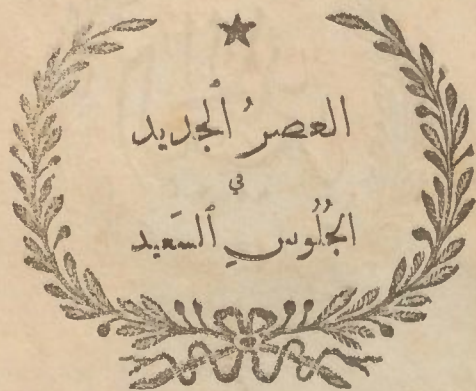 العصرُ ٱلجديد
في
الجُلُوسِ ٱلسَعيد